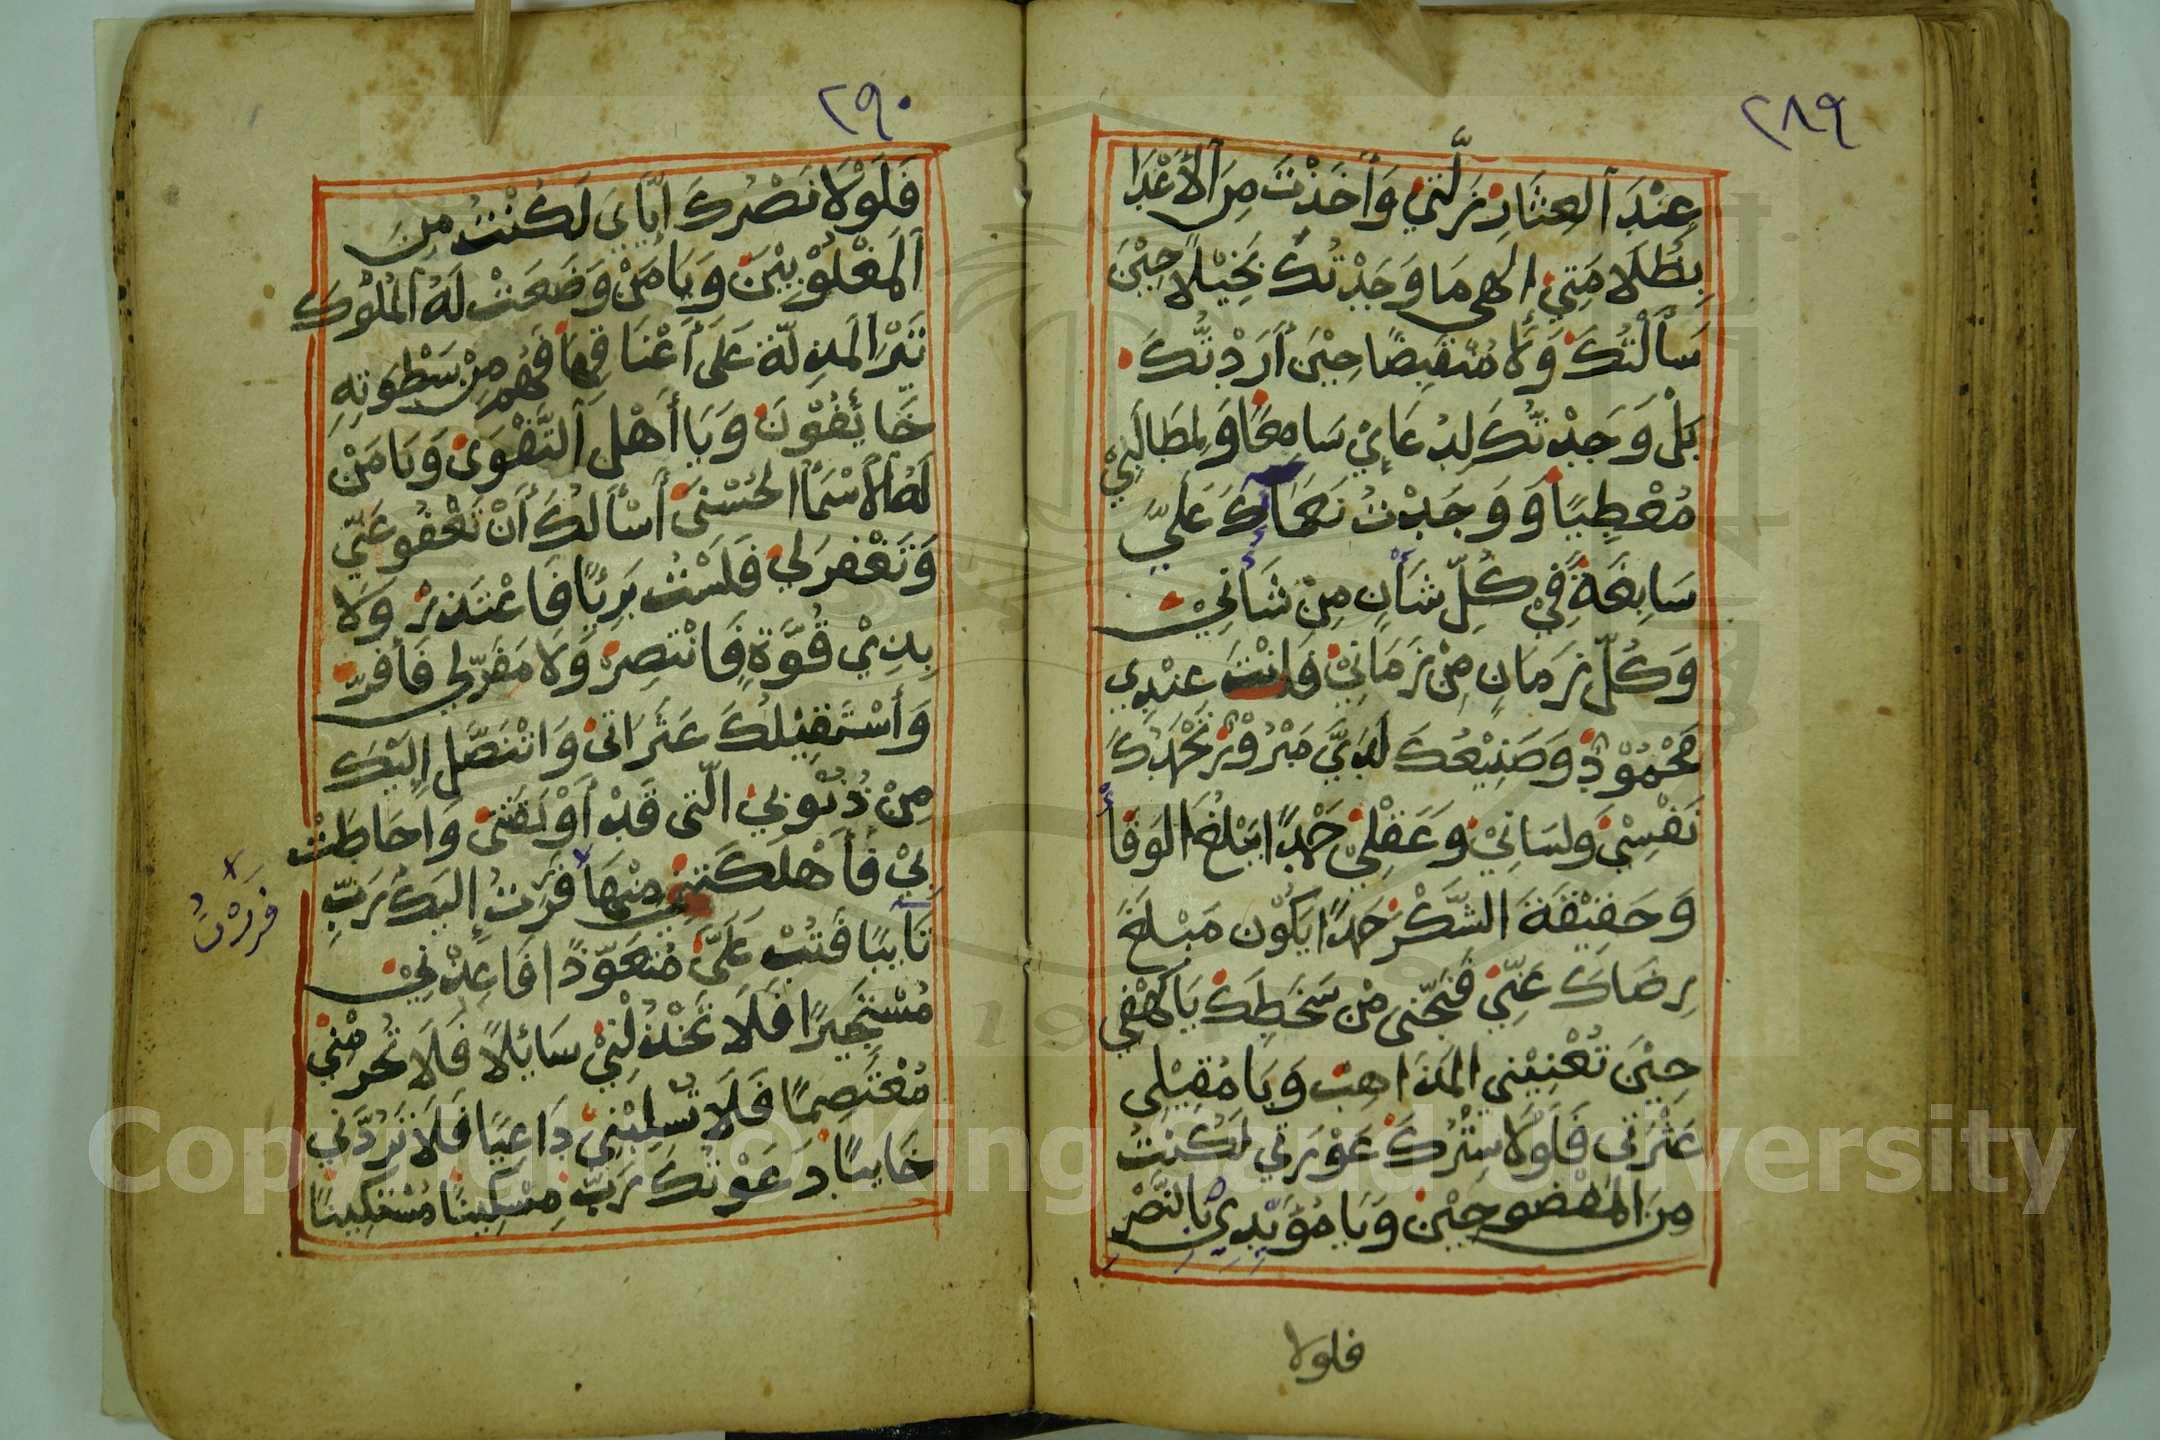 ٢٨٩
عِنْدَ الْعِثَارِ زَلَّتِي وَأَخَذْتَ مِنَ الْأَعْدَا
بِظُلَامَتِي إلهي مَا وَجَدْتُكَ بَخِيْلًا حِيْنَ
سَأَلْتُكَ وَلَا مُنْقَبِضًا حِيْنَ أَرَدْتُكَ
بَلْ وَجَدْتُكَ لِدُعَائِيْ سَامِعًا وَلِمَطَالِبِيْ
مُعْطِيًا وَوَجَدْتُ نَعْمَاكَ عَلَيَّ
سَابِغَةً فِيْ كُلِّ شَأْنٍ مِنْ شَأْنِيْ
وَكُلِّ زَمَانٍ مِنْ زَمَانِيْ فَأَنْتَ عِنْدِي
مَحْمُوْدٌ وَصَنِيْعُكَ لَدَيَّ مَبْرُوْرٌ تَحْمَدُكَ
نَفْسِيْ وَلِسَانِيْ وَعَقْلِيْ حَمْدًا يَبْلُغُ الْوَفَاءَ
وَحَقِيْقَةَ الشُّكْرِ حَمْدًا يَكُوْنُ مَبْلَغَ
رِضَاكَ عَنِّيْ فَنَجِّنِي مِنْ سَخَطِكَ يَا كَهْفِيْ
حِيْنَ تُعْيِيْنِي الْمَذَاهِبُ وَيَا مُقِيْلِي
عَثْرَتِي فَلَوْلَا سِتْرُكَ عَوْرَتِي لَكُنْتُ
مِنَ الْمَفْضُوحِيْنَ وَيَا مُؤَيِّدِيْ بِالنَّصْرِ
فلولا
٢٩٠
فَلَوْلَا نَصْرُكَ إِيَّايَ لَكُنْتُ مِنَ
الْمَغْلُوْبِيْنَ وَيَا مَنْ وَضَعَتْ لَهُ الْمُلُوْكُ
نَيْرَ الْمَذِلَّةِ عَلَى أَعْنَاقِهَا فَهُمْ مِنْ سَطْوَتِهِ
خَائِفُوْنَ وَيَا أَهْلَ التَّقْوَى وَيَا مَنْ
لَهُ الْأَسْمَا الْحُسْنَى أَسْأَلُكَ أَنْ تَعْفُوَ عَنِّي
وَتَغْفِرَ لِي فَلَسْتُ بَرِيْئًا فَاعْتَذِرْ وَلَا
بِذِيْ قُوَّةٍ فَانْتَصِرْ وَلَا مَفَرَّ لِي فَأَفِرّ
وَأَسْتَقِيْلُكَ عَثَرَاتِي وَاتْنَصَّلُ إِلَيْكَ
مِنْ ذُنُوْبِي الَّتِي قَدْ أَوْبَقَتْنِي وَأَحَاطَتْ
بِيْ فَأَهْلَكَتْنِي مِنْهَا فَرَرْتُ إِلَيْكَ رَبِّ
فَرَرْتُ
تَائِبًا فَتُبْ عَلَيَّ مُتَعَوِّذًا فَاعِذْنِيْ
مُسْتَجِيْرًا فَلَا تَخْذُلْنِيْ سَائِلًا فَلَا تَحْرِمْنِيْ
مُعْتَصِمًا فَلَا تُسْلِمْنِيْ دَاعِيًا فَلَا تَرُدَّنِي
خَايبًا دَعَوْتُكَ رَبِّ مِسْكِيْنًا مُسْتَكِيْنًا
Copyright © King Saud University